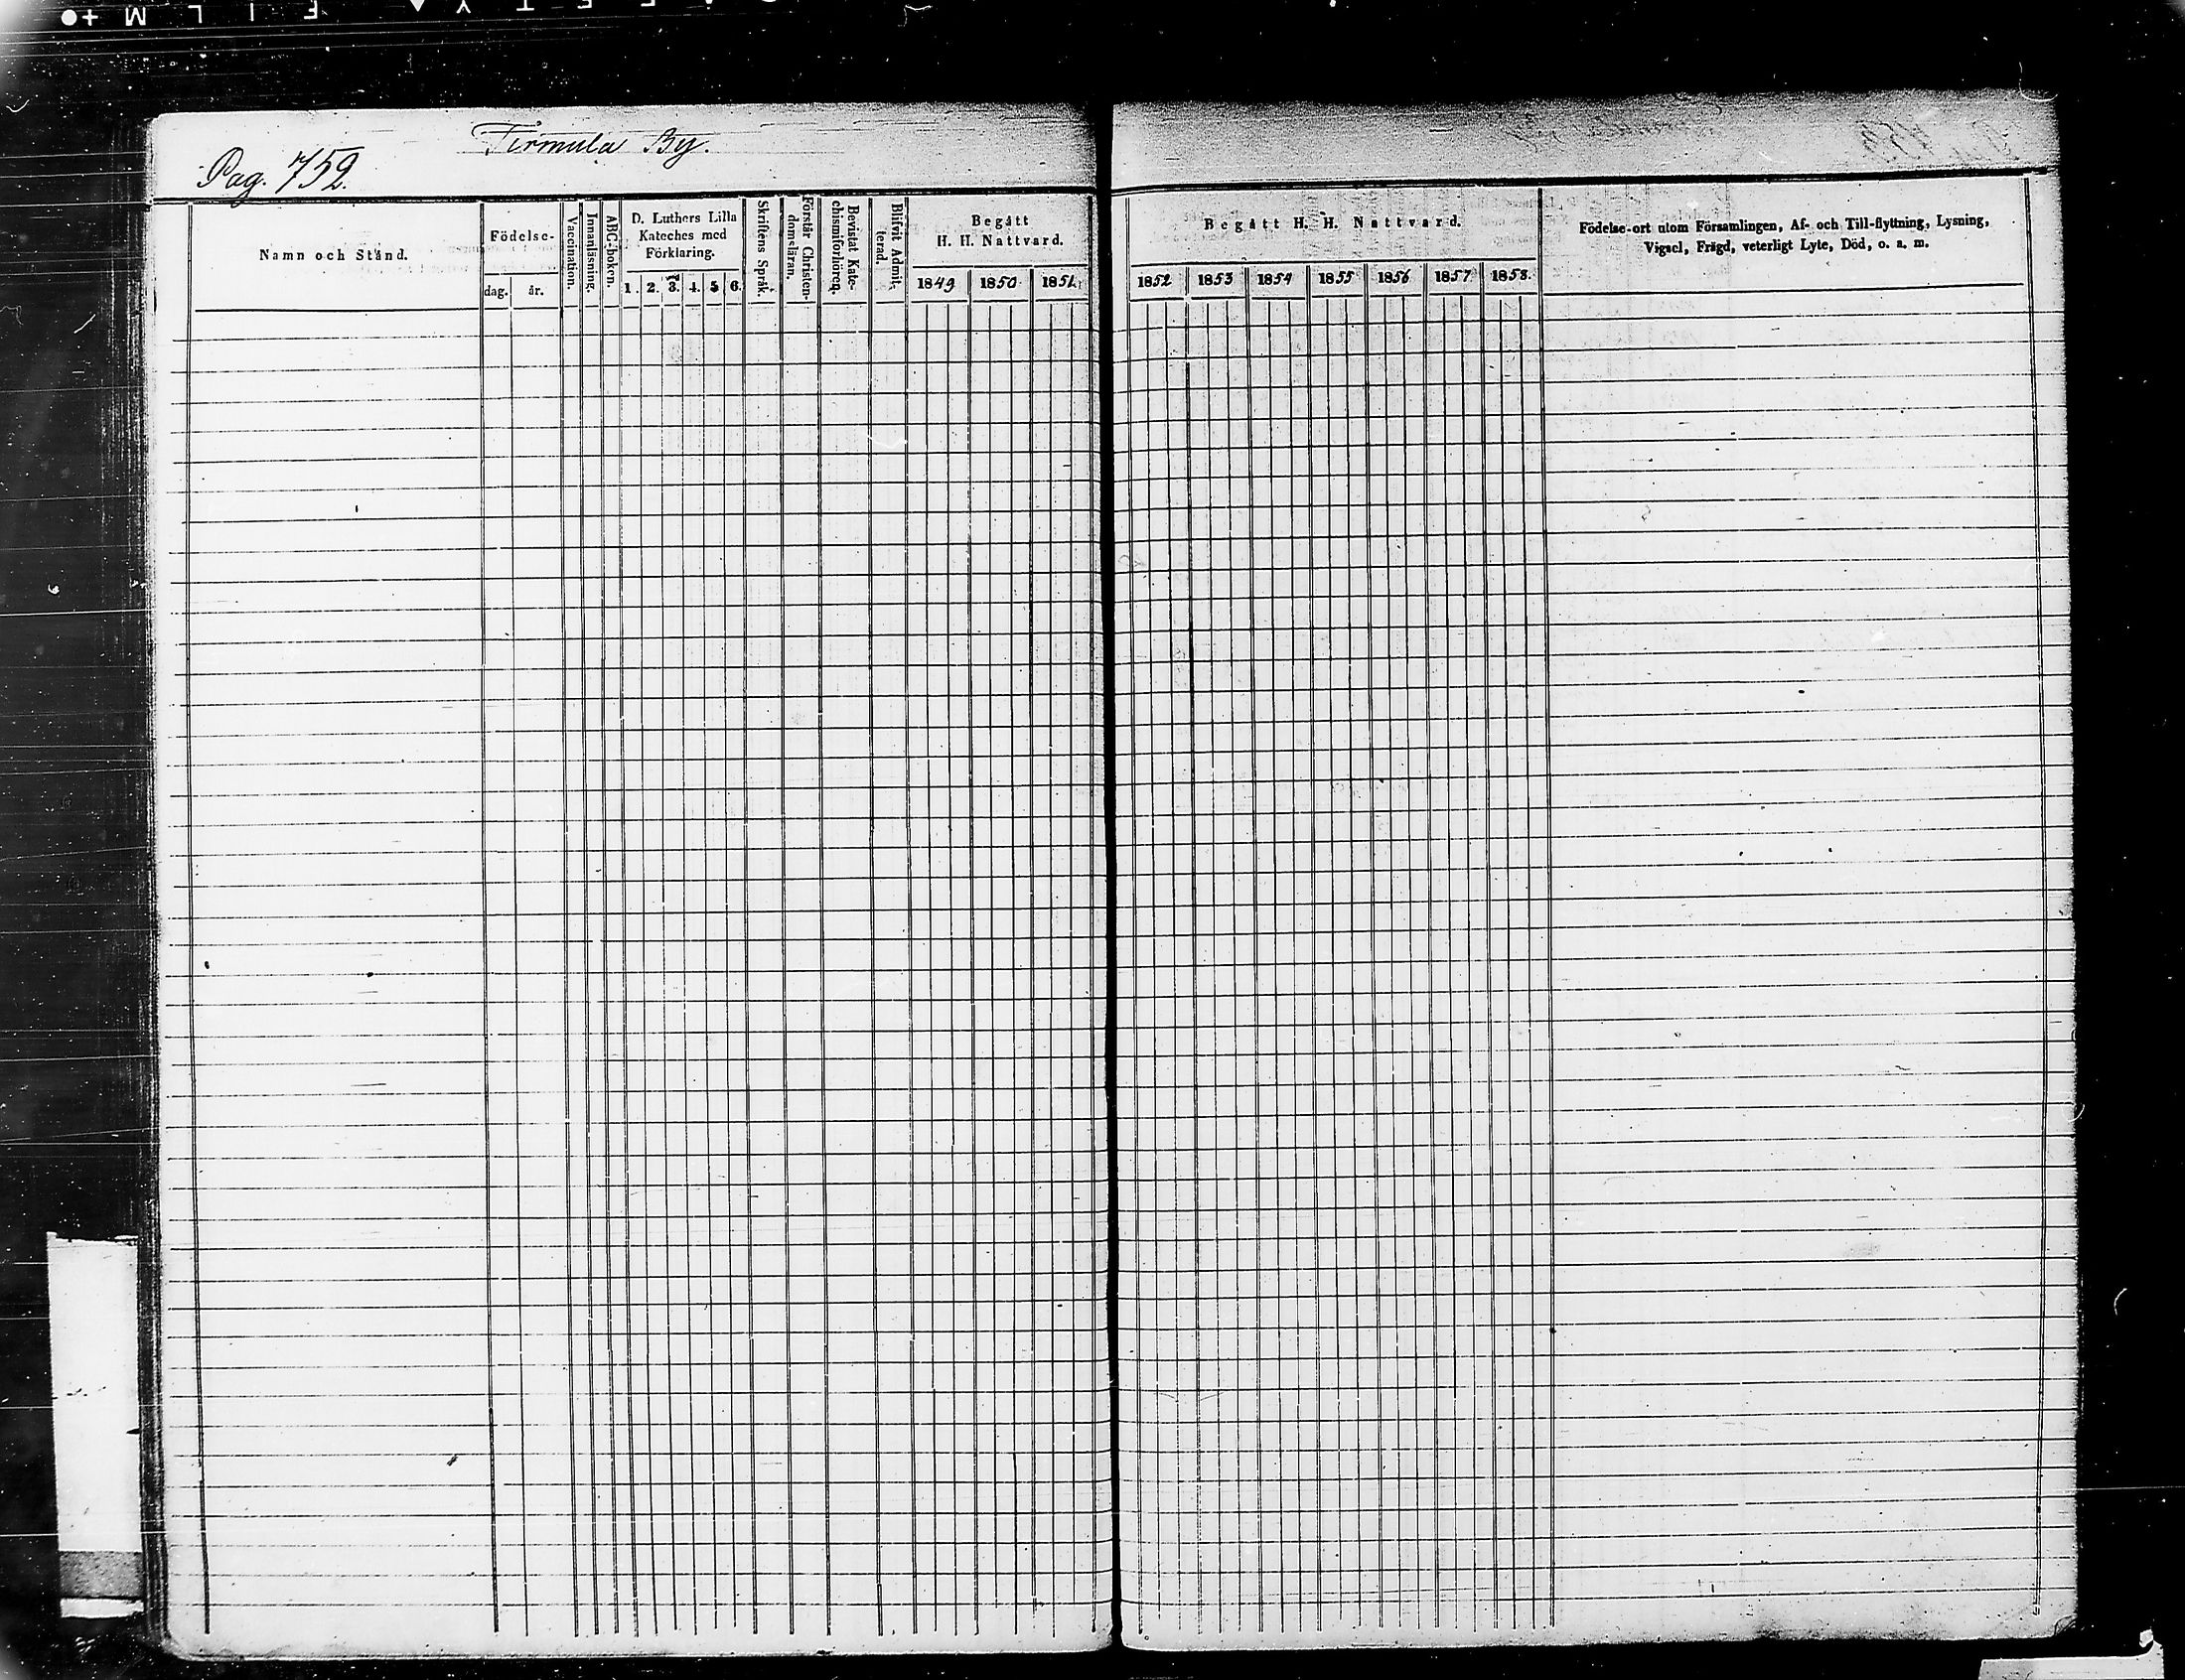 Tirmula By.
Pag. 752.
Namn och Stånd.
Födelse-
dag. år.
Vaccination.
Innanläsning.
ABC-boken.
D. Luthers Lilla
Kateches med
Förklaring.
1. 2. 3. 4. 5 6.
Skriftens Språk.
Förstår Christen-
domsläran.
Bevistat Kate-
chismiförhören.
Blifvit Admit-
terad.
Begått
H. H. Nattvard.
1849 1850 1851
Begått H. H. Nattvard.
1852 1853 1854 1855 1856 1857 1858.
Födelse-ort utom Församlingen, Af- och Till-flyttning, Lysning,
Vigsel, Frägd, veterligt Lyte, Död, o. s. m.